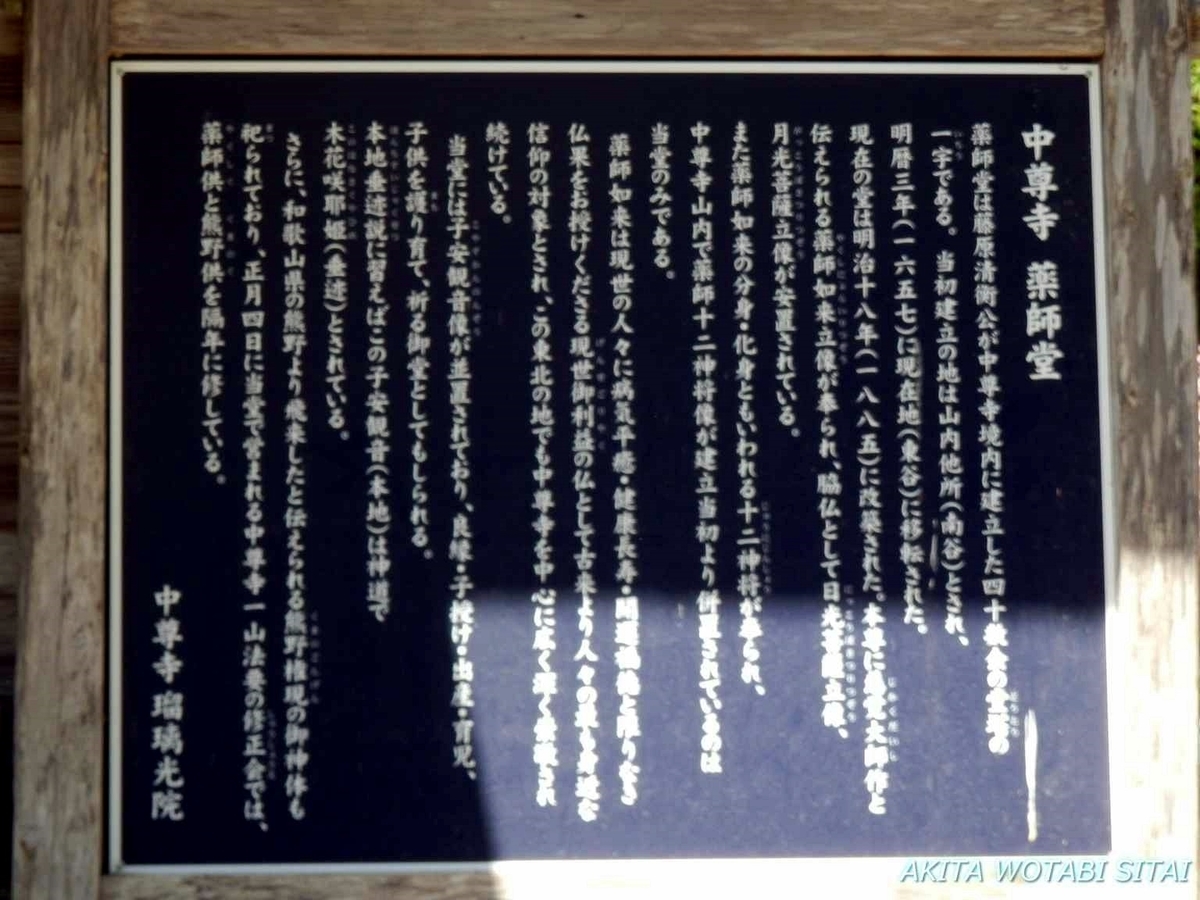 中尊寺 薬師堂
薬師堂は藤原清衡公が中尊寺境内に建立した四十数余の堂塔の
一宇である。当初建立の地は山内他所(南谷)とされ、
明暦三年(一六五七)に現在地(東谷)に移転された。
現在の堂は明治十八年(一八八五)に改築された。本尊に慈覚大師作と
伝えられる薬師如来立像が奉られ、脇仏として日光菩薩立像、
月光菩薩立像が安置されている。
また薬師如来の分身・化身ともいわれる十二神将が奉られ、
中尊寺山内で薬師十二神将像が建立当初より併置されているのは
当堂のみである。
薬師如来は現世の人々に病気平癒・健康長寿・開運福徳と限りなき
仏果をお授けくださる現世御利益の仏として古来より人々の最も身近な
信仰の対象とされ、この東北の地でも中尊寺を中心に広く深く崇敬され
続けている。
当堂には子安観音像が並置されており、良縁・子授け・出産・育児、
子供を護り育て、祈る御堂としてもしられる。
本地垂迹説に習えばこの子安観音(本地)は神道で
木花咲耶姫(垂迹)とされている。
さらに、和歌山県の熊野より飛来したと伝えられる熊野権現の御神体も
祀られており、正月四日に当堂で営まれる中尊寺一山法要の修正会では、
薬師供と熊野供を隔年に修している。
中尊寺 瑠璃光院
AKITA WOTABI SITAI